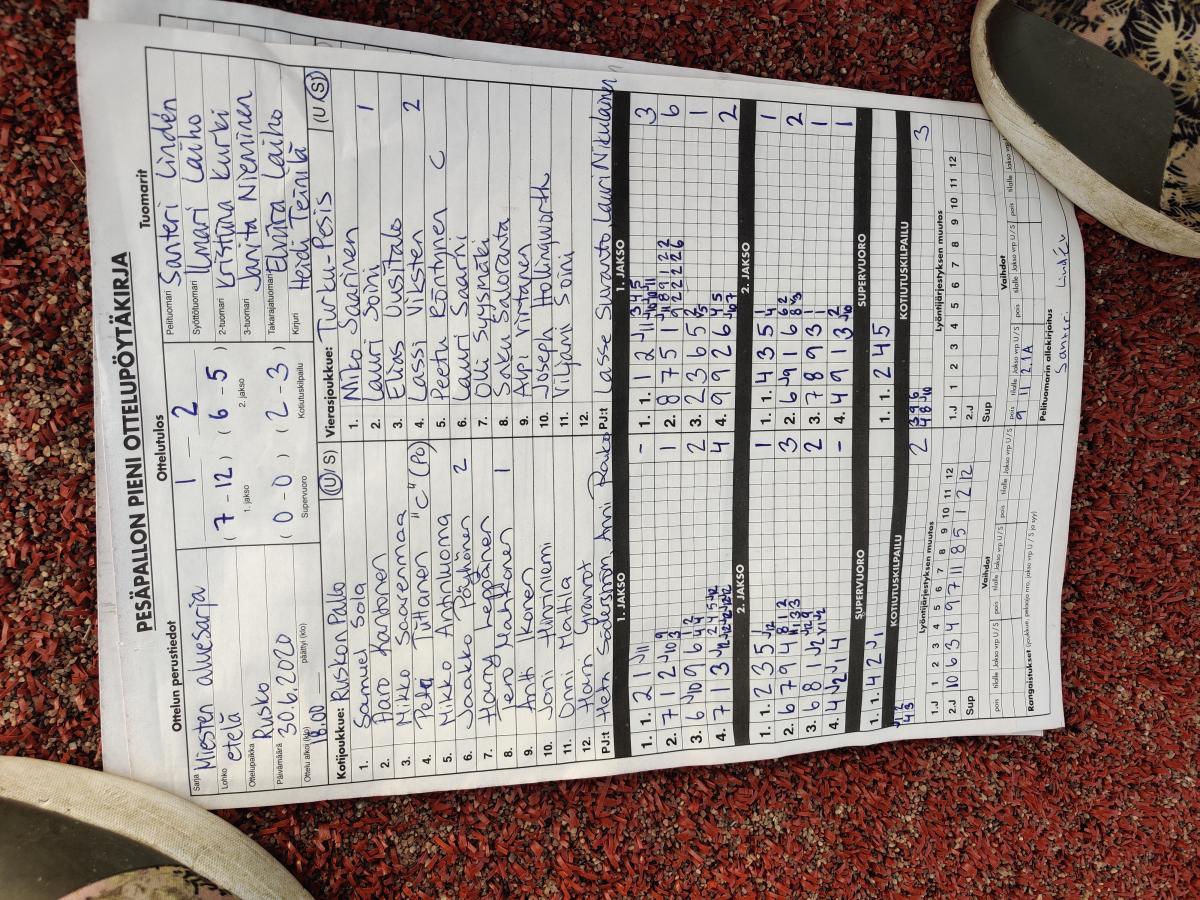 PESÄPALLON PIENI OTTELUPÖYTÄKIRJA
Ottelun perustiedot
Sarja Miesten aluesarja
Lohko etelä
Ottelupaikka Rusko
Päivämäärä 30.6.2020
Ottelu alkoi (klo) 18.00 päättyi (klo)
Ottelutulos
1 – 2
( 7 - 12 ) ( 6 - 5 )
1. jakso 2. jakso
( 0 - 0 ) ( 2 - 3 )
Supervuoro Kotiutuskilpailu
Tuomarit
Pelituomari Santeri Lindén
Syöttötuomari Ilmari Laiho
2-tuomari Kristiina Kurki
3-tuomari Janita Nieminen
Takarajatuomari Elviira Laiho
Kirjuri Heidi Teinilä
Kotijoukkue: Ruskon Pallo (U/S)
1. Samuel Sola
2. Aaro Kantonen
3. Mikko Saarenmaa
4. Petri Tuttanen "C" (PO)
5. Mikko Antinluoma
6. Jaakko Pöyhönen 2
7. Harry Leppänen
8. Tero Mahkonen 1
9. Antti Ikonen
10. Joni Hirviniemi
11. Onni Matta
12. Harri Granrot
PJ:t Heta Söderström, Anni Rauko
Vierasjoukkue: Turku-Pesis (U/S)
1. Niko Saarinen
2. Lauri Soini 1
3. Elias Uusitalo
4. Lassi Viksten 2
5. Peetu Röntynen C
6. Lauri Saarni
7. Olli Syysmäki
8. Saku Saloranta
9. Arpi Virtanen
10. Joseph Hollingworth
11. Viljami Soini
12.
PJ:t Lasse Suvanto, Lauri Nikkulainen
1. JAKSO
1. 1. 2 1 J11 -
2. 7 1 2 J10 9 3 1
3. 6 J10 9 6 4 2 4 2
4. 7 1 3 4
1. JAKSO
1. 1. 1 2 J11 3
2. 8 7 5 1 6
3. 2 3 6 5 1
4. 9 9 2 6 2
2. JAKSO
1. 1. 2 3 5 J12 1
2. 6 7 9 4 3
3. 6 8 1 2
4. 4 J2 1 4 -
2. JAKSO
1. 1. 4 3 5 4 1 1
2. 6 J9 1 6 2
3. 7 8 9 3 1 1
4. 4 9 1 3 1
SUPERVUORO
1. 1. 4 2 J1
SUPERVUORO
1. 1. 2 4 5
KOTIUTUSKILPAILU
2
KOTIUTUSKILPAILU
3
Lyöntijärjestyksen muutos
1 2 3 4 5 6 7 8 9 10 11 12
1.J
2.J 10 6 3 4 9 7 11 8 5 1 2 12
Sup
Lyöntijärjestyksen muutos
1 2 3 4 5 6 7 8 9 10 11 12
1.J
2.J
Sup
Vaihdot
pois tilalle Jakso vrp U / S
Vaihdot
pois tilalle Jakso vrp U / S
9 11 2.1A
Rangaistukset (joukkue, pelaaja nro, jakso vrp U / S ja syy)
Pelituomarin allekirjoitus
Santeri Lindén